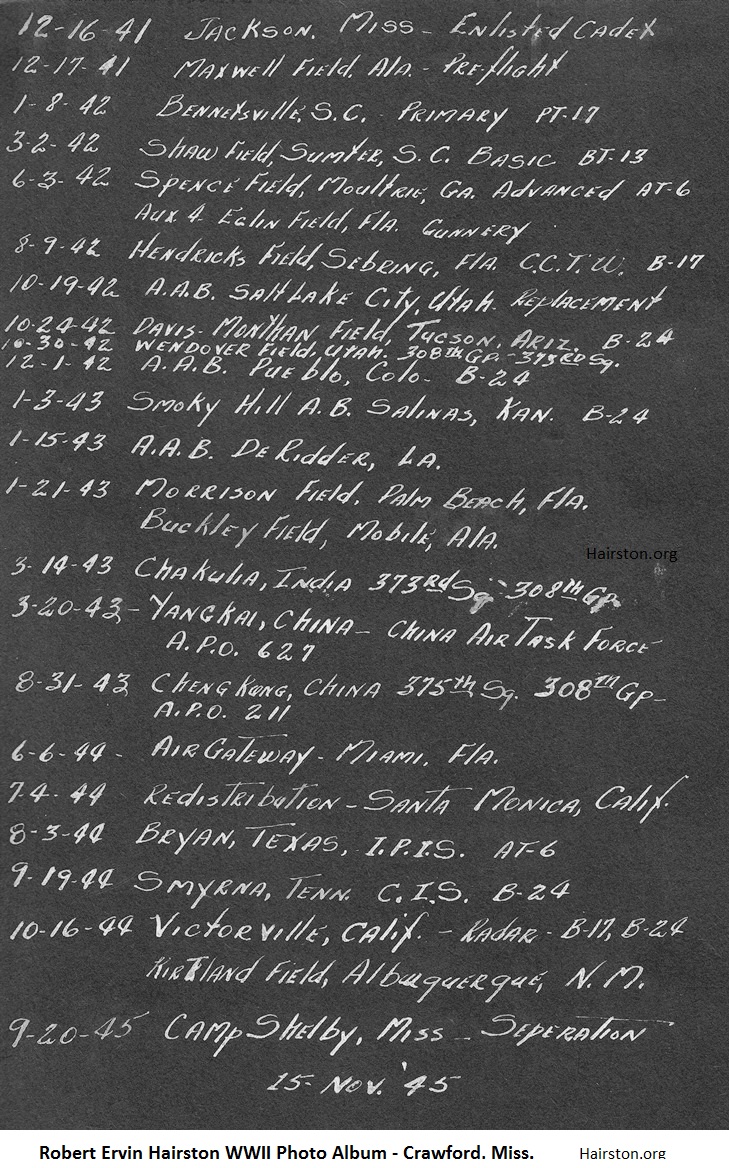 12-16-41 Jackson, Miss - Enlisted Cadet
12-17-41 Maxwell Field, Ala. - Preflight
1-8-42 Bennetsville, S.C. - Primary PT-17
3-2-42 Shaw Field, Sumter, S.C. Basic BT-13
6-3-42 Spence Field, Moultrie, Ga. Advanced AT-6
Aux 4 - Eglin Field, Fla. Gunnery
8-9-42 Hendricks Field, Sebring, Fla. C.C.T.W. B-17
10-19-42 A.A.B. Salt Lake City, Utah. Replacement
10-24-42 Davis-Monthan Field, Tucson, Ariz. B-24
10-30-42 Wendover Field, Utah. 308th Gp. - 373rd Sq.
12-1-42 A.A.B. Pueblo, Colo - B-24
1-3-43 Smoky Hill A.B. Salinas, Kan. B-24
1-15-43 A.A.B. DeRidder, La.
1-21-43 Morrison Field, Palm Beach, Fla.
Buckley Field, Mobile, Ala.
Hairston.org
3-14-43 Chakulia, India 373rd Sq - 308th Gp.
3-20-43 - Yangkai, China - China Air Task Force
A.P.O. 627
8-31-43 Cheng Kong, China 375th Sq. 308th Gp -
A.P.O. 211
6-6-44 - Air Gateway - Miami, Fla.
7-4-44 Redistribution - Santa Monica, Calif.
8-3-44 Bryan, Texas, I.P.I.S. AT-6
9-19-44 Smyrna, Tenn. C.I.S. B-24
10-16-44 Victorville, Calif. - Radar - B-17, B-24
Kirtland Field, Albuquerque, N.M.
9-20-45 Camp Shelby, Miss - Seperation
15 - Nov. '45
Robert Ervin Hairston WWII Photo Album - Crawford, Miss. Hairston.org